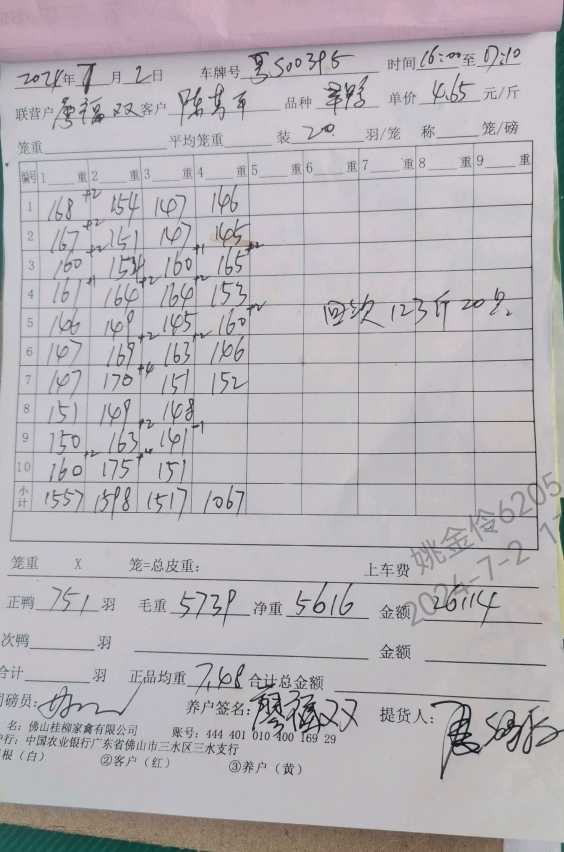 2024年7月2日 车牌号 粤S00395 时间16:00至17:10
联营户 廖福双 客户 品种 单价 4.65 元/斤
笼重 平均笼重 装 20 羽/笼 称 笼/磅
编号 1 重 2 重 3 重 4 重 5 重 6 重 7 重 8 重 9 重
1 168 +2 154 147 146
2 167 +2 151 147 145
3 160 +2 153 160 +1 165 +2
4 161 +1 164 +2 164 +2 153
5 146 149 145 160 +2
6 147 169 +2 163 +2 146
7 147 170 +4 151 152
8 151 149 148
9 150 163 +2 141 -1
10 160 +2 175 +4 151
小计 1557 1598 1517 1067
回次 123斤 20只
笼重 X 笼=总皮重: 上车费
正鸭 751 羽 毛重 5739 净重 5616 金额 26114
次鸭 羽 金额
合计 羽 正品均重 7.48 合计总金额
司磅员: 养户签名: 廖福双 提货人:
名: 佛山桂柳家禽有限公司 账号: 444 401 010 400 169 29
户行: 中国农业银行广东省佛山市三水区三水支行
根（白） ②客户（红） ③养户（黄）
姚金伶6205
2024-7-2 17